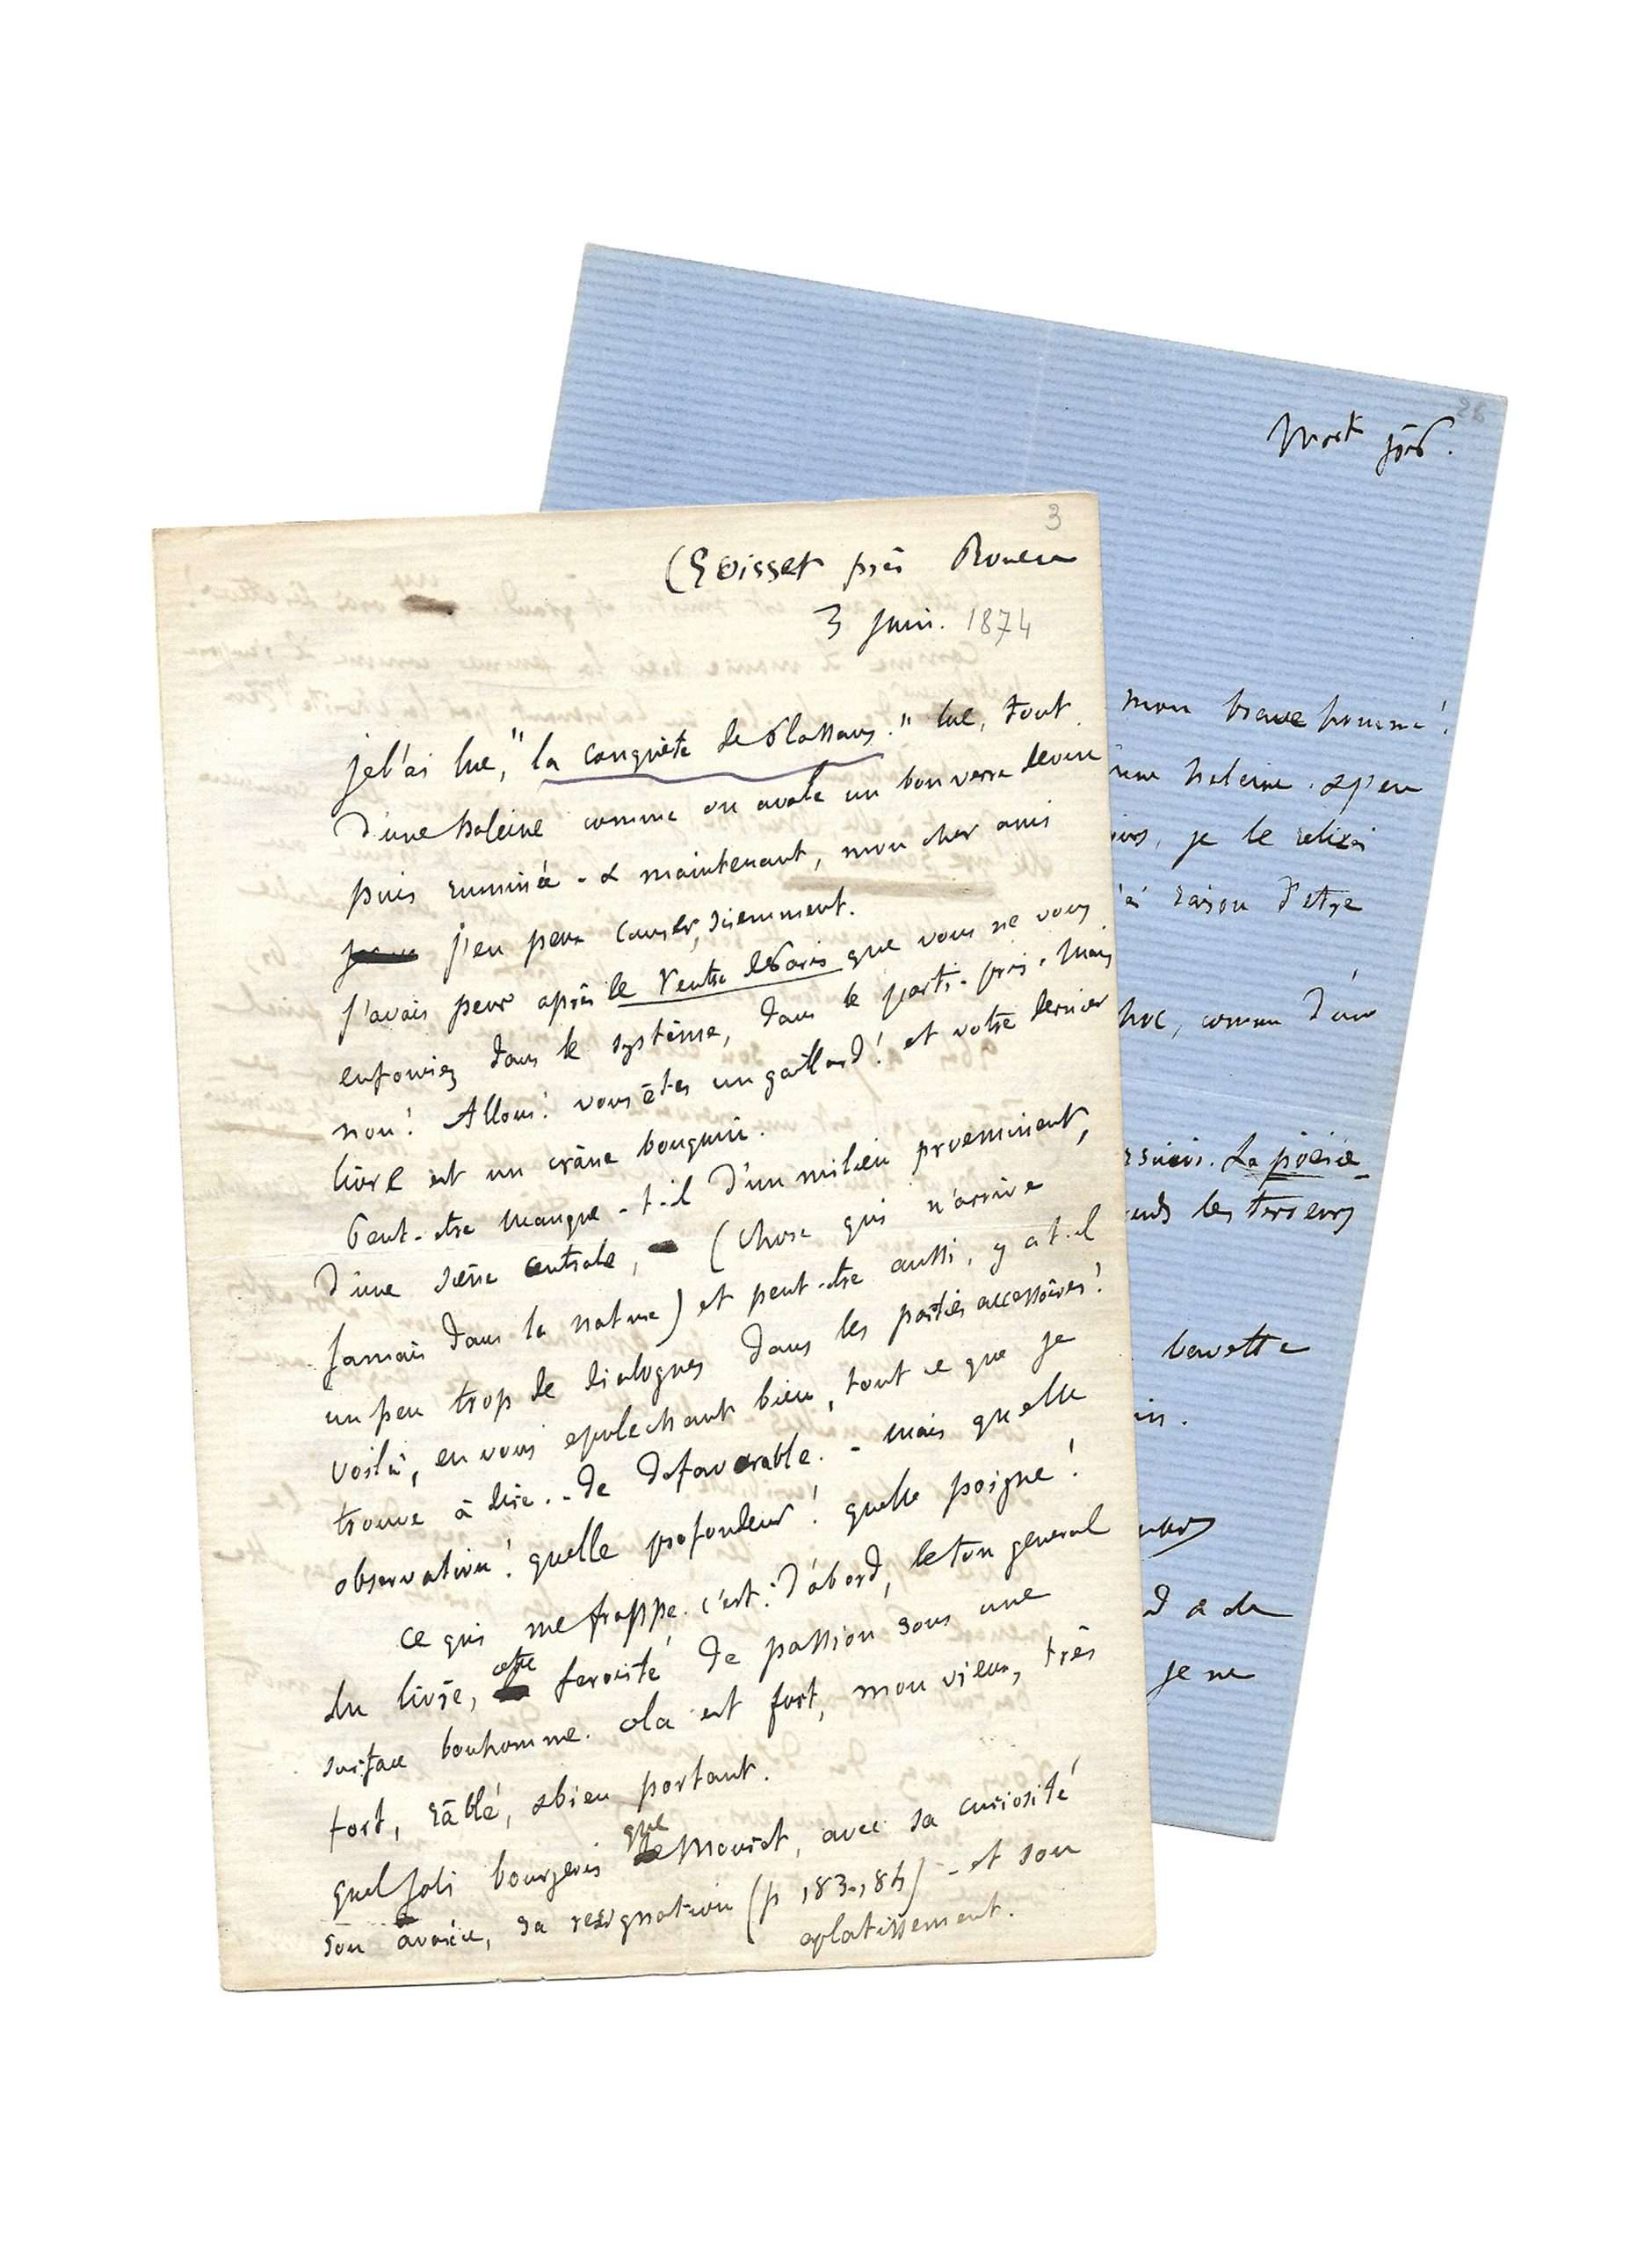 3
Croisset près Rouen
3 juin. 1874
je l'ai lue, "la conquête de Plassans." lue, tout
d'une haleine comme on avale un bon verre de vin
puis ruminée - & maintenant, mon cher ami
j'en peux causer, sciemment.
J'avais peur après le Ventre de Paris que vous ne vous
enfonciez dans le système, dans le parti-pris. Mais
non! Allons! vous êtes un gaillard! et votre dernier
livre est un crâne bouquin.
Peut-etre manque-t-il d'un milieu proeminent,
d'une scène centrale, (chose qui n'arrive
jamais dans la nature) et peut-etre aussi, y a t-il
un peu trop de dialogues dans les parties accessoires!
voilà, en vous epluchant bien, tout ce que je
trouve à dire.- de defavorable. - mais quelle
observation! quelle profondeur! quelle poigne!
ce qui me frappe. c'est: d'abord, le ton general
du livre, cette ferocité de passion sous une
surface bonhomme. cela est fort, mon vieux, très
fort, râblé, & bien portant.
quel joli bourgeois que Mouret, avec sa curiosité
son avarice, sa resignation (p 183-184) - et son
aplatissement.
28
mon brave homme!
haleine. & j'en
je le relirai
raison d'etre
comme d'un
La poésie
les terreurs
bavette
je ne